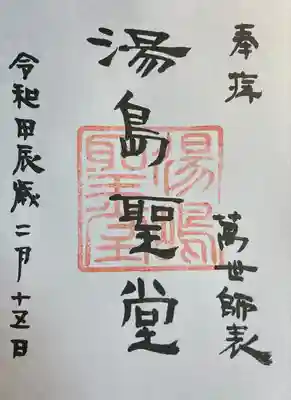 奉拝
萬世師表
湯島聖堂
湯島聖堂
令和甲辰歳二月十五日